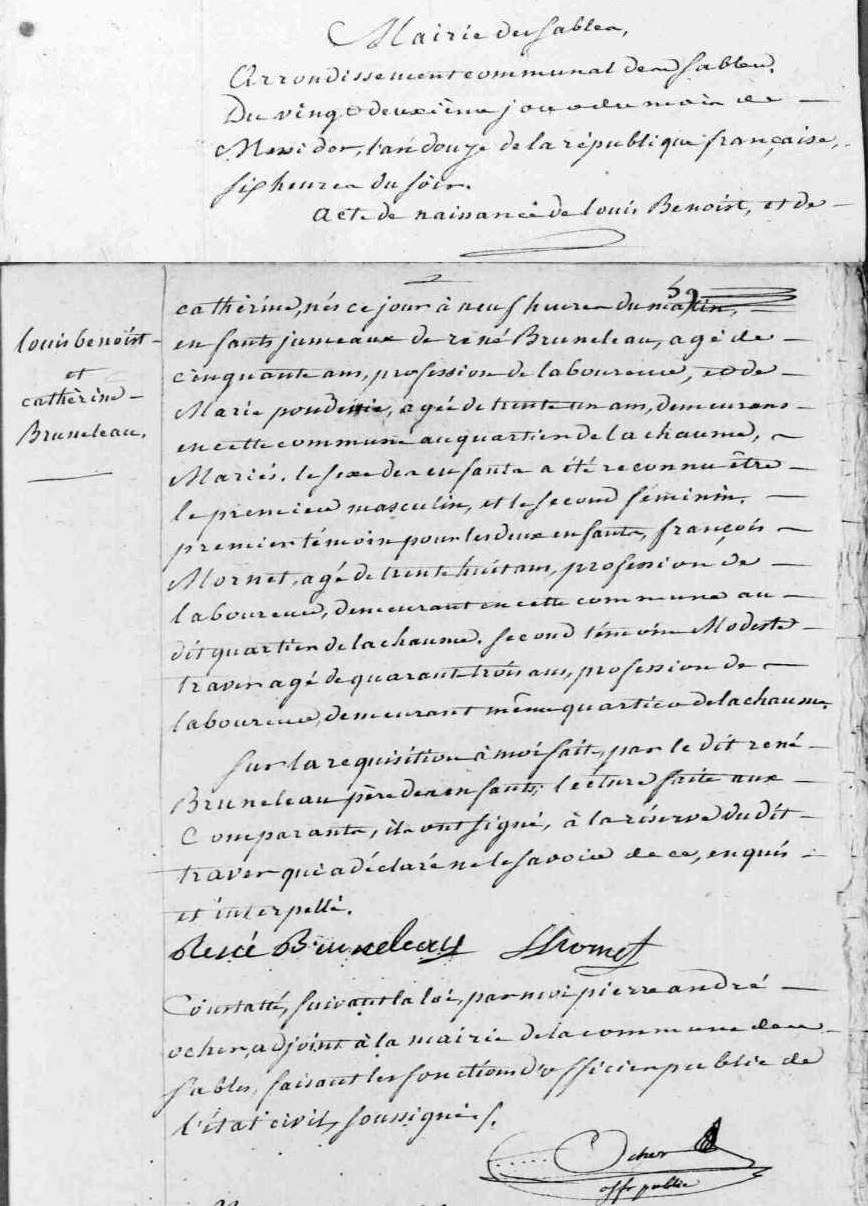 Mairie des Sables,
Arrondissement communal des Sables.
Du vingt deuxième jour du mois de
Messidor, l'an douze de la république française,
six heures du soir.
acte de naissance de louis Benoist, et de
59
catherine, nés ce jour à neuf heures du matin,
louis benoist
et
catherine
Bruneleau.
enfants jumeaux de rené Bruneleau, agé de
cinquante ans, profession de laboureur, et de
Marie, agée de trente un ans, demeurans
en cette commune au quartier de la chaume,
Mariés. le sexe des enfants a été reconnu être
le premier masculin, et le second féminin.
premier témoin pour les deux enfants, françois
Mornet, agé de trente huit ans, profession de
laboureur, demeurant en cette commune au
dit quartier de la chaume. second témoin Modeste
traver agé de quarante trois ans, profession de
laboureur, demeurant même quartier de la chaume.
sur la requisition à moi fait, par le dit rené
Bruneleau père des enfants; lecture faite aux
Comparants, ils ont signé, à la réserve du dit
traver qui a déclaré ne le savoir de ce, enquis
et interpellé.
René Bruneleau Mornet
Constaté, suivant la loi, par moi pierre andré
ocher, adjoint à la mairie de la commune des
sables, faisant les fonctions d'officier public de
l'état civil, soussigné.
Ocher
offr public